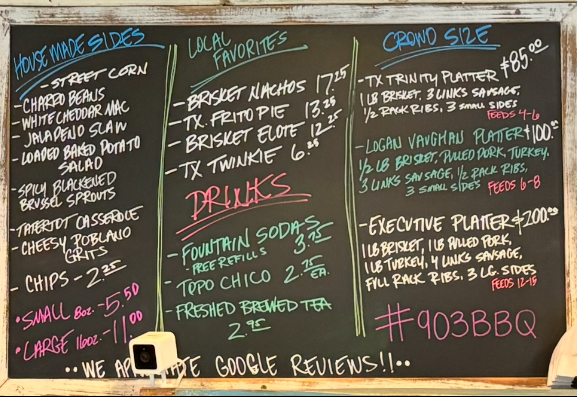 HOUSE MADE SIDES
- STREET CORN
- CHARRO BEANS
- WHITE CHEDDAR MAC
- JALAPENO SLAW
- LOADED BAKED POTATO
SALAD
- SPICY BLACKENED
BRUSSEL SPROUTS
- TATERTOT CASSEROLE
- CHEESY POBLANO
GRITS
- CHIPS - 2.25
• SMALL 8oz. - 5.50
• LARGE 16oz. - 11.00
LOCAL
FAVORITES
- BRISKET NACHOS 17.25
- TX. FRITO PIE 13.25
- BRISKET ELOTE 12.25
- TX TWINKIE 6.25
DRINKS
- FOUNTAIN SODAS
FREE REFILLS 3.75
- TOPO CHICO 2.75 EA.
- FRESHED BREWED TEA
2.95
CROWD SIZE
- TX TRINITY PLATTER $85.00
1 LB BRISKET, 3 LINKS SAUSAGE,
1/2 RACK RIBS, 3 SMALL SIDES
FEEDS 4-6
- LOGAN VAUGHAN PLATTER $100.00
1/2 LB BRISKET, PULLED PORK, TURKEY,
3 LINKS SAUSAGE, 1/2 RACK RIBS,
3 SMALL SIDES FEEDS 6-8
- EXECUTIVE PLATTER $200.00
1 LB BRISKET, 1 LB PULLED PORK,
1 LB TURKEY, 4 LINKS SAUSAGE,
FULL RACK RIBS, 3 LG. SIDES
FEEDS 12-15
#903BBQ
•• WE GOOGLE REVIEWS!! ••